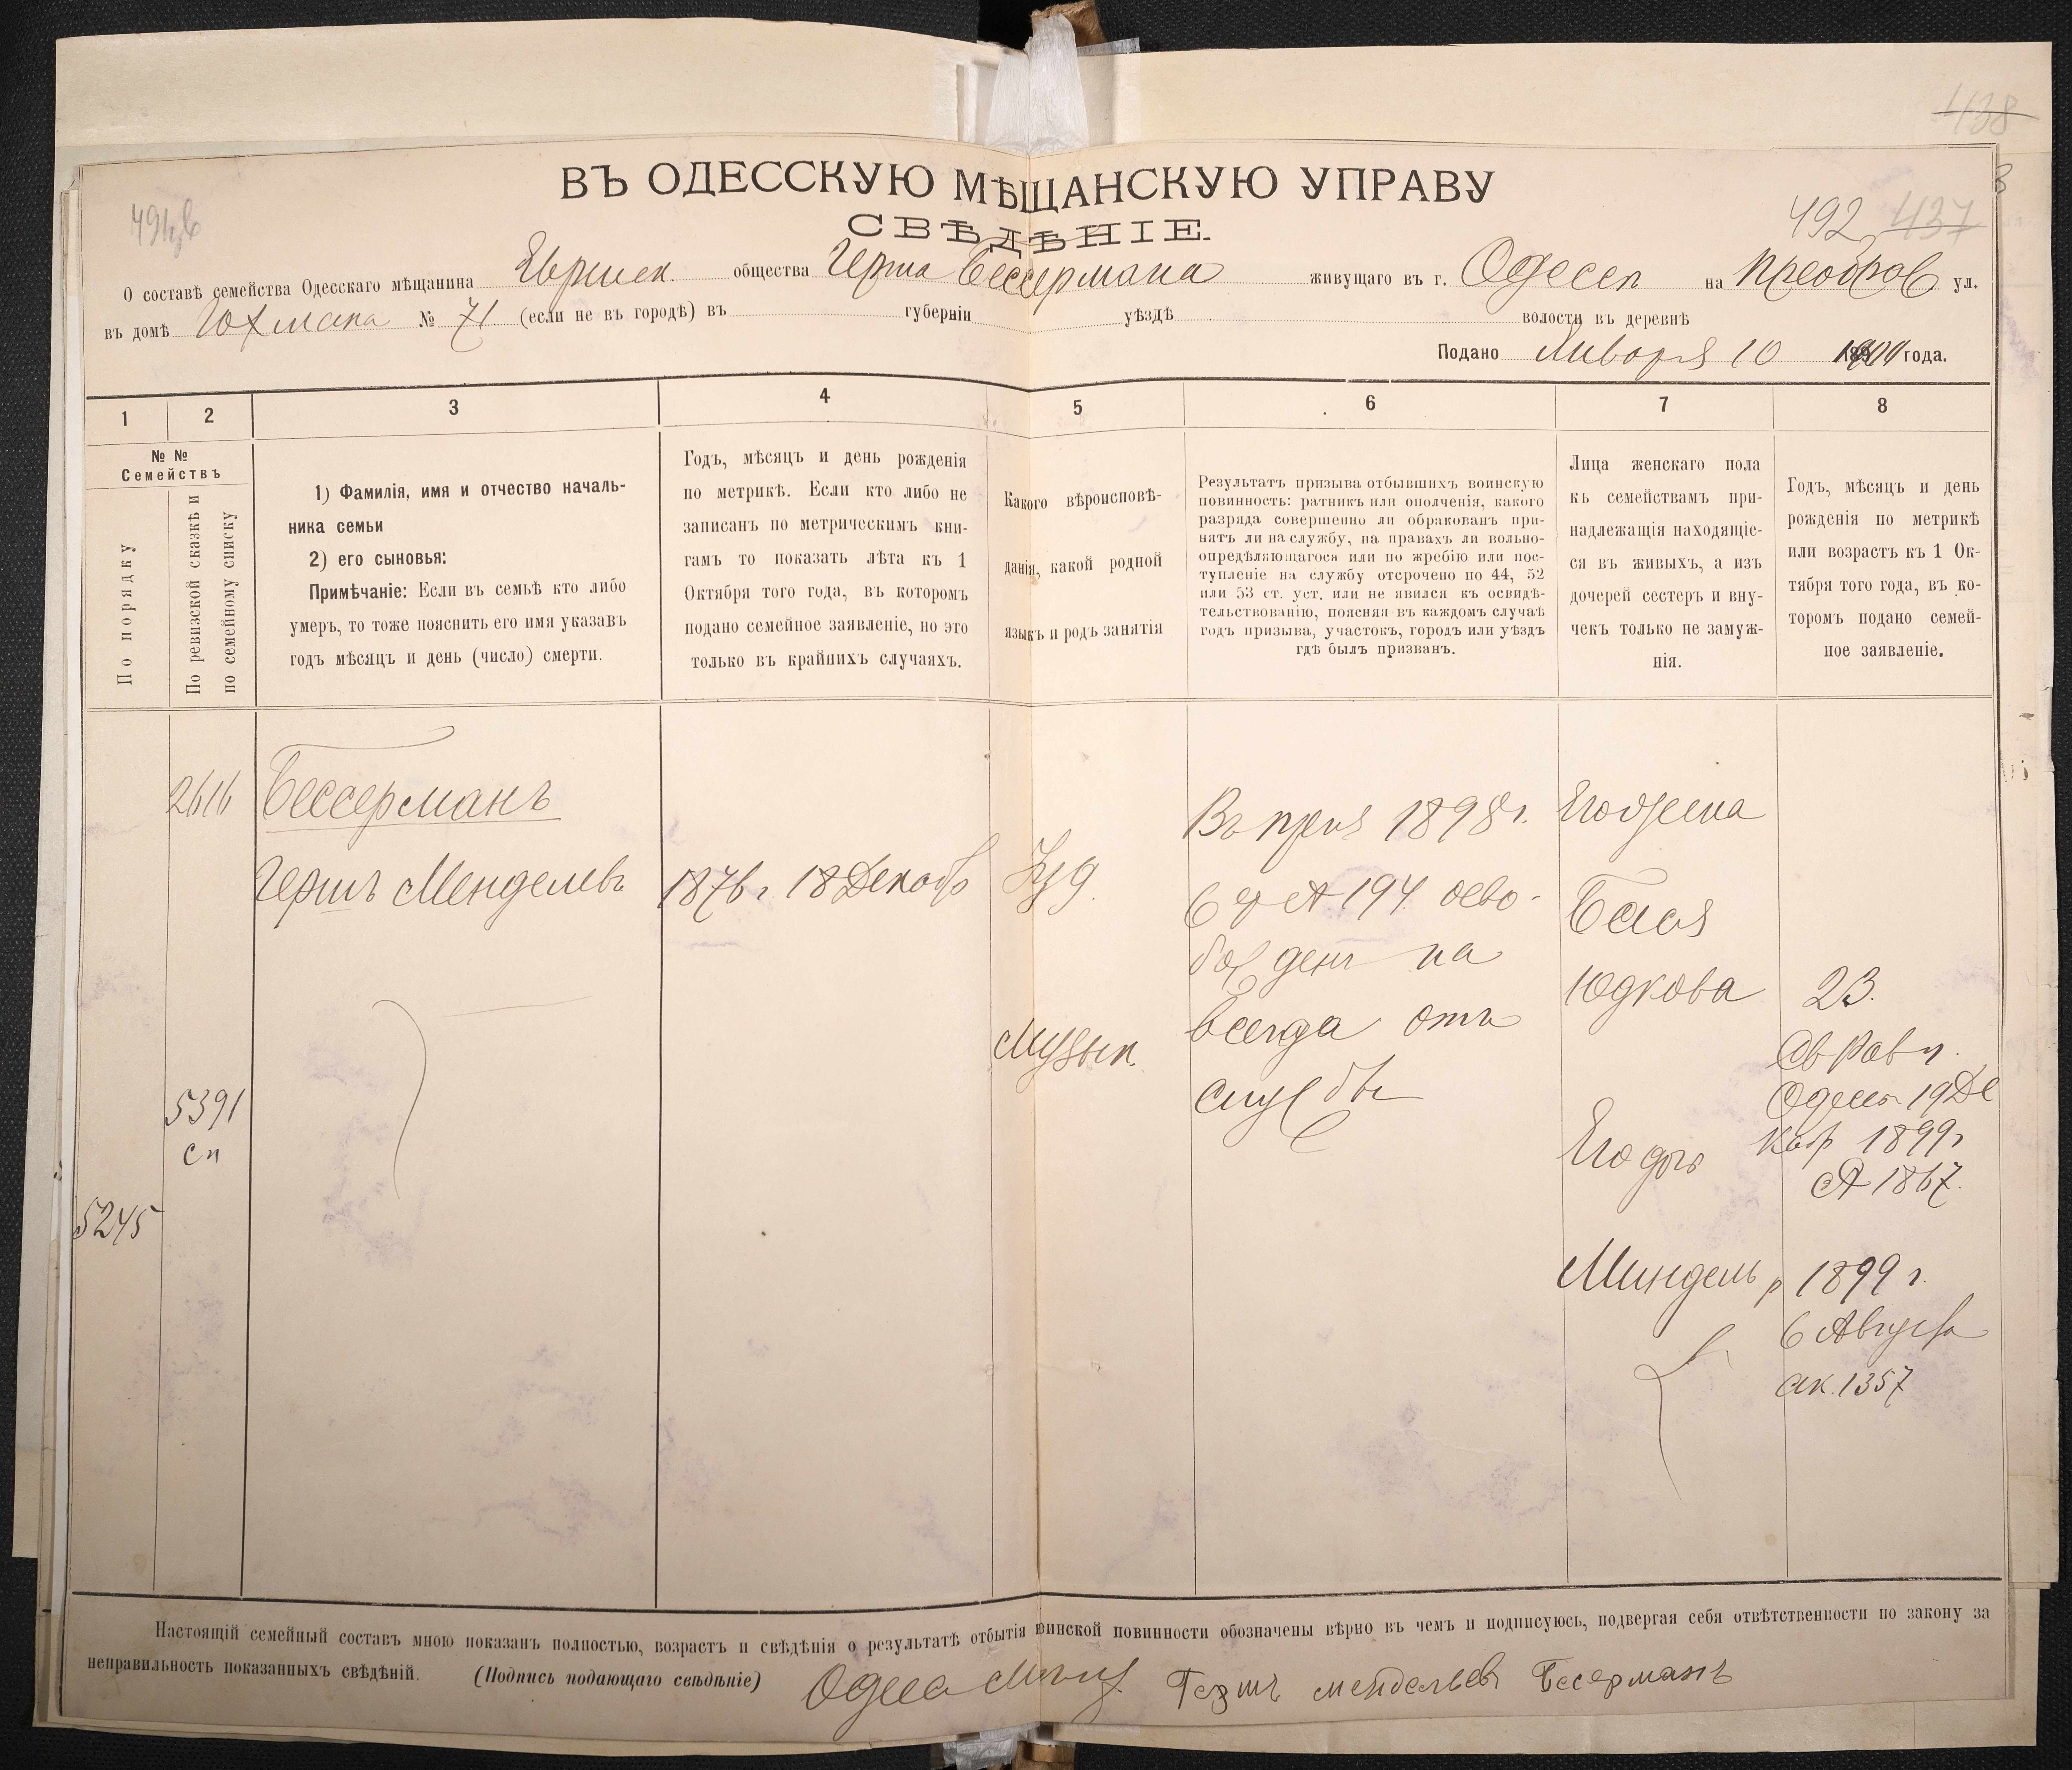 438
ВЪ ОДЕССКУЮ МѢЩАНСКУЮ УПРАВУ
СВѢДѢНІЕ.
492 437
О составѣ семейства Одесскаго мѣщанина Еврейск. общества Герша Бессермана живущаго въ г. Одессѣ на Преображ ул.
въ домѣ Гохмана № 71 (если не въ городѣ) въ губерніи уѣздѣ волости въ деревнѣ
Подано Января 10 года.
1 2 3 4 5 6 7 8
№ №
Семействъ
По порядку
По ревизской сказкѣ и
по семейному списку
1) Фамилія, имя и отчество началь-
ника семьи
2) его сыновья:
Примѣчаніе: Если въ семьѣ кто либо
умеръ, то тоже пояснить его имя указавъ
годъ мѣсяцъ и день (число) смерти.
Годъ, мѣсяцъ и день рожденія
по метрикѣ. Если кто либо не
записанъ по метрическимъ кни-
гамъ то показать лѣта къ 1
Октября того года, въ которомъ
подано семейное заявленіе, но это
только въ крайнихъ случаяхъ.
Какого вѣроисповѣ-
данія, какой родной
языкъ и родъ занятія
Результатъ призыва отбывшихъ воинскую
повинность: ратникъ или ополченія, какого
разряда совершенно ли обракованъ при-
нятъ ли на службу, на правахъ ли вольно-
опредѣляющагося или по жребію или пос-
тупленіе на службу отсрочено по 44, 52
или 53 ст. уст. или не явился къ освидѣ-
тельствованію, поясняя въ каждомъ случаѣ
годъ призыва, участокъ, городъ или уѣздъ
гдѣ былъ призванъ.
Лица женскаго пола
къ семействамъ при-
надлежащія находящіе-
ся въ живыхъ, а изъ
дочерей сестеръ и вну-
чекъ только не замуж-
нія.
Годъ, мѣсяцъ и день
рожденія по метрикѣ
или возрастъ къ 1 Ок-
тября того года, въ ко-
торомъ подано семей-
ное заявленіе.
2616
Бессерманъ
Гершъ Менделевъ
1876 г. 18 Декабр
Іуд.
Музык.
5391
сп
5245
Въ приз 1898 г.
194 осво-
божденъ на
всегда отъ
службы
Его жена
Бася
Юдкова
23.
Одессы 19 Де
каб 1899 г
А 1867.
Его дочь
Миндель р 1899 г.
6 Августа
ак. 1357
Настоящій семейный составъ мною показанъ полностью, возрастъ и свѣдѣнія о результатѣ отбытія воинской повинности обозначены вѣрно въ чемъ и подписуюсь, подвергая себя отвѣтственности по закону за
неправильность показанныхъ свѣдѣній. (Подпись подающаго свѣдѣніе) Гершъ мендельевъ Бесерманъ